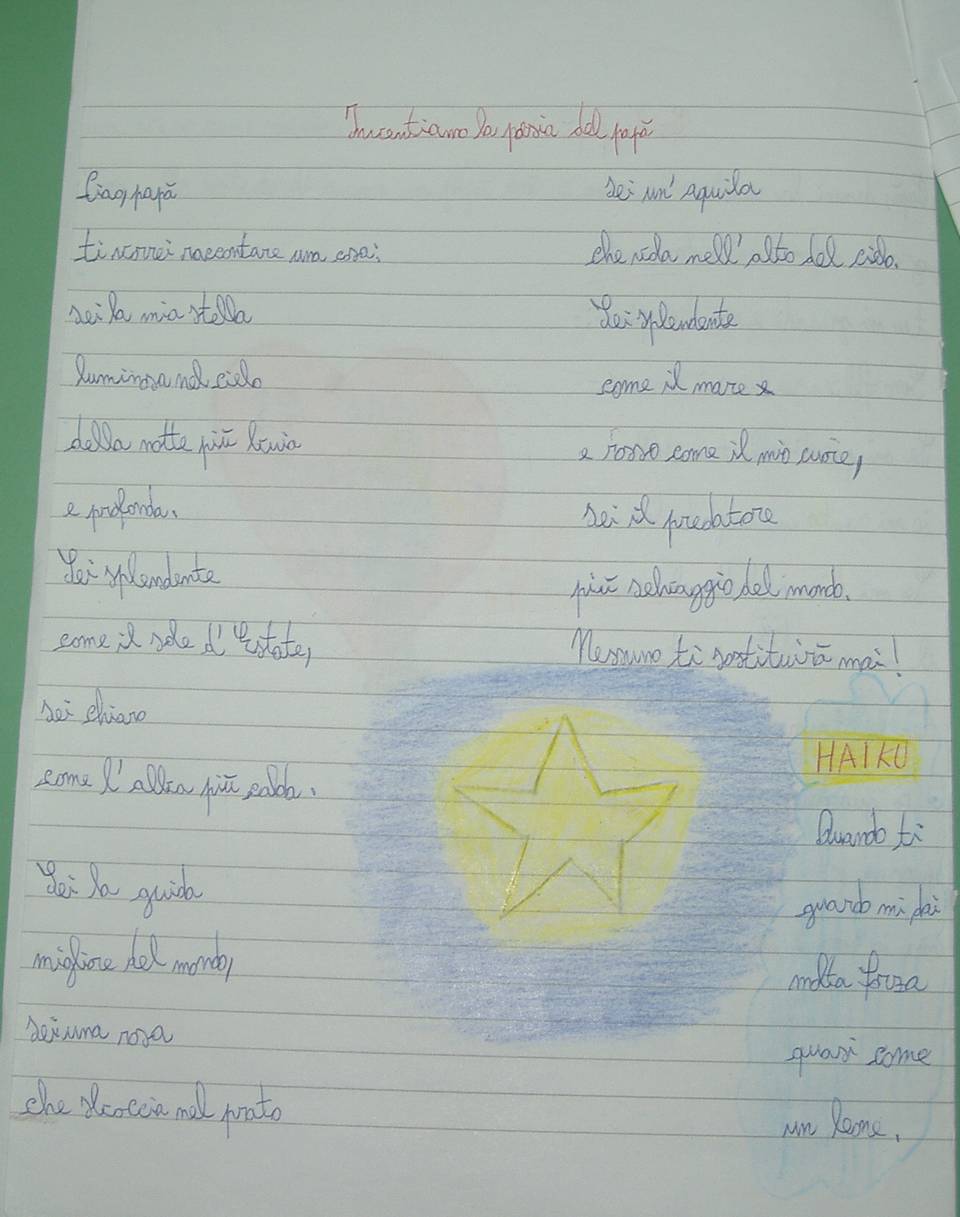 Inventiamo la poesia del papà
Ciao, papà
ti vorrei raccontare una cosa:
sei la mia stella
luminosa nel cielo
della notte più buia
e profonda.
Sei splendente
come il sole d'Estate,
sei chiaro
come l'alba più calda.
Sei la guida
migliore del mondo,
sei una rosa
che sboccia nel prato
sei un'aquila
che vola nell'alto del cielo.
Sei splendente
come il mare
e rosso come il mio cuore,
sei il predatore
più selvaggio del mondo.
Nessuno ti sostituirà mai!
HAIKU
Quando ti
guardo mi dai
molta forza
quasi come
un leone.